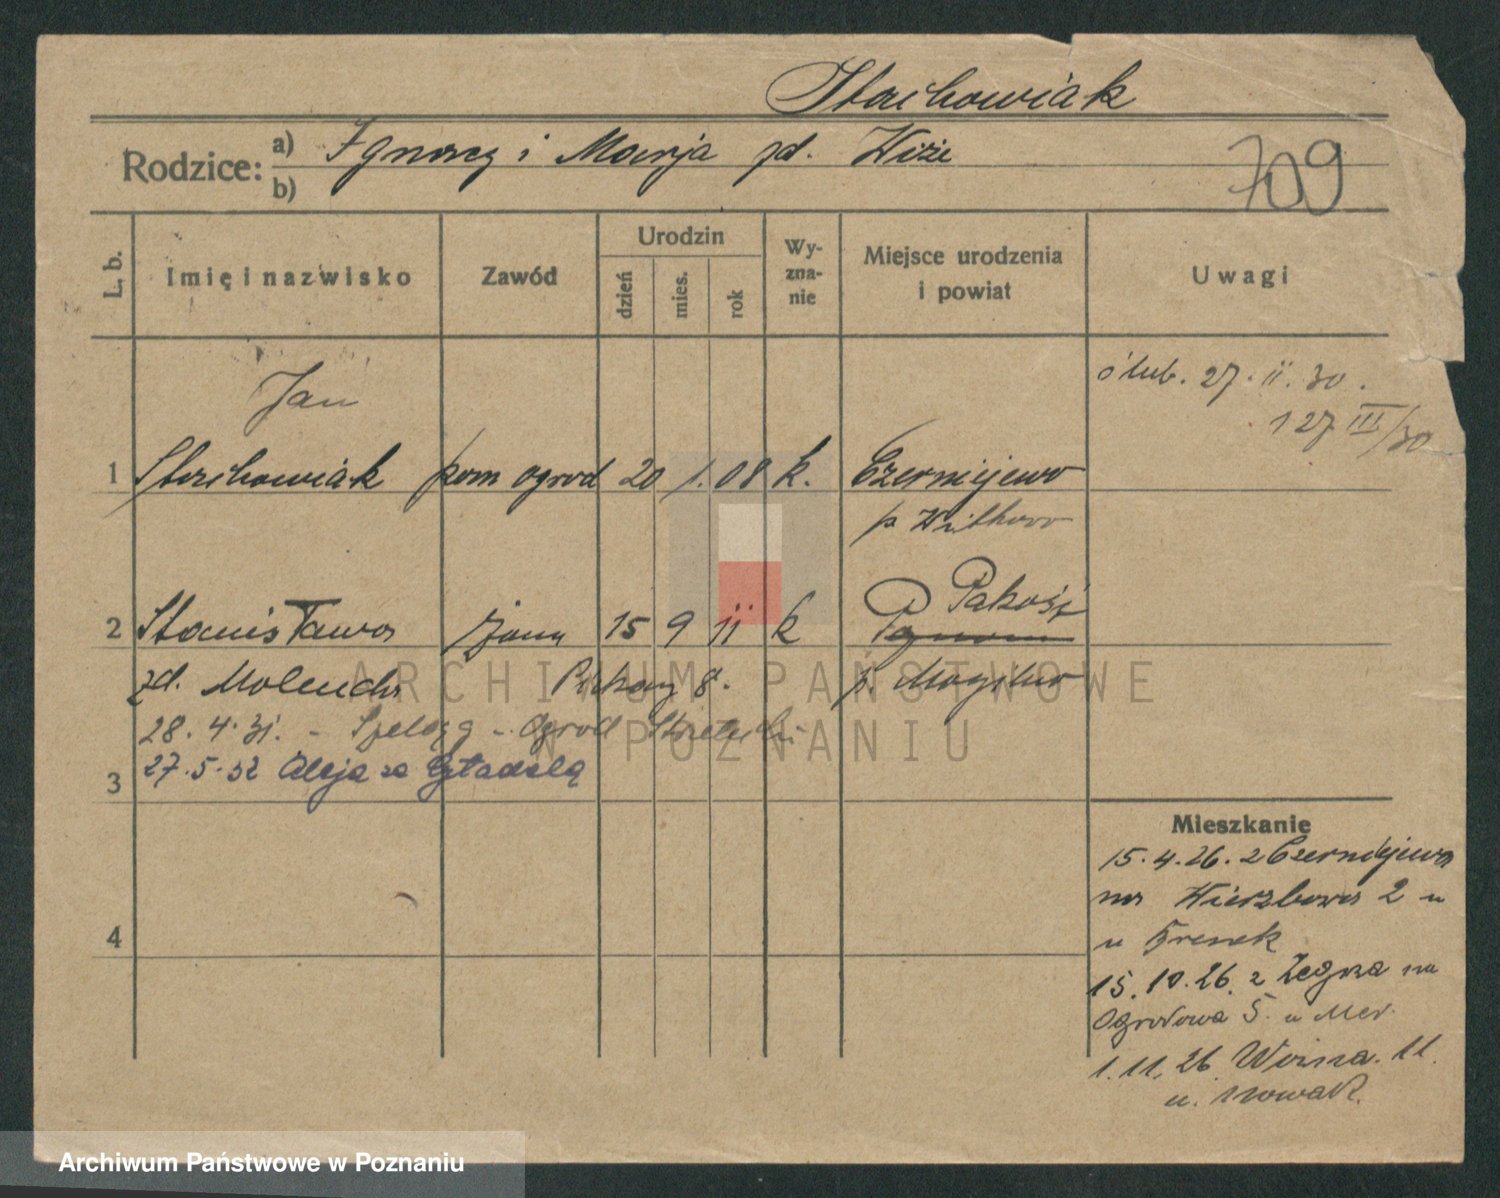 Stachowiak
Rodzice: a) Ignacy i Marja zd. Wiże
b)
709
L. b. Imię i nazwisko Zawód Urodzin dzień mies. rok Wy-zna-nie Miejsce urodzenia i powiat Uwagi
Jan
ślub. 27. ii. 30.
127 III/30
1 Stachowiak pom ogrod 20 1. 08 k. Czerniejewo
p Witkowo
Pakość
2 Stanisława żona 15 9 ii k
zd. Molenda Piekary 8. p. Mogilno
28. 4. 31. - Szeląg - Ogrod Strzelecki
27.5.32 Aleja za Cytadelą
3
Mieszkanie
15.4.26. z Czerniejewa
na Wierzbowa 2 u
u
4
15.10.26. z Zegrza na
Ogrodowa 5. u
1.11.26 11.
u. Nowak.
ARCHIWUM PAŃSTWOWE
W POZNANIU
Archiwum Państwowe w Poznaniu